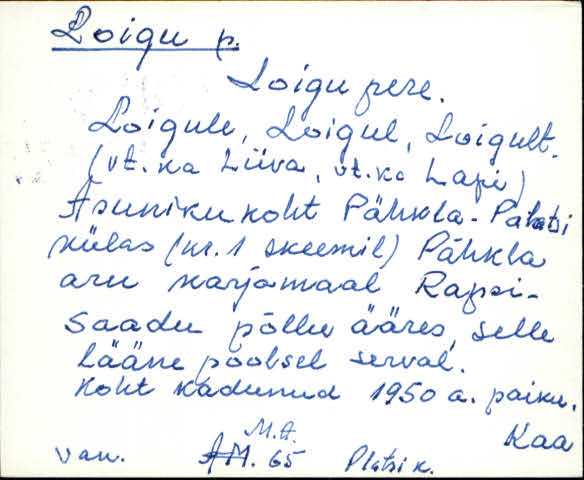 Loigu p.
Loigu pere.
Loigule, Loigul, Loigult.
(vt. ka Liiva, vt. ka Lapi)
Asuniku koht Pähkla-Palatsi
külas (nr. 1 skeemil) Pähkla
aru karjamaal Rapsi-
saadu põllu ääres, selle
lääne poolsel serval.
Koht kadunud 1950 a. paiku.
Kaa
M.A.
van. AM. 65 Platsi k.